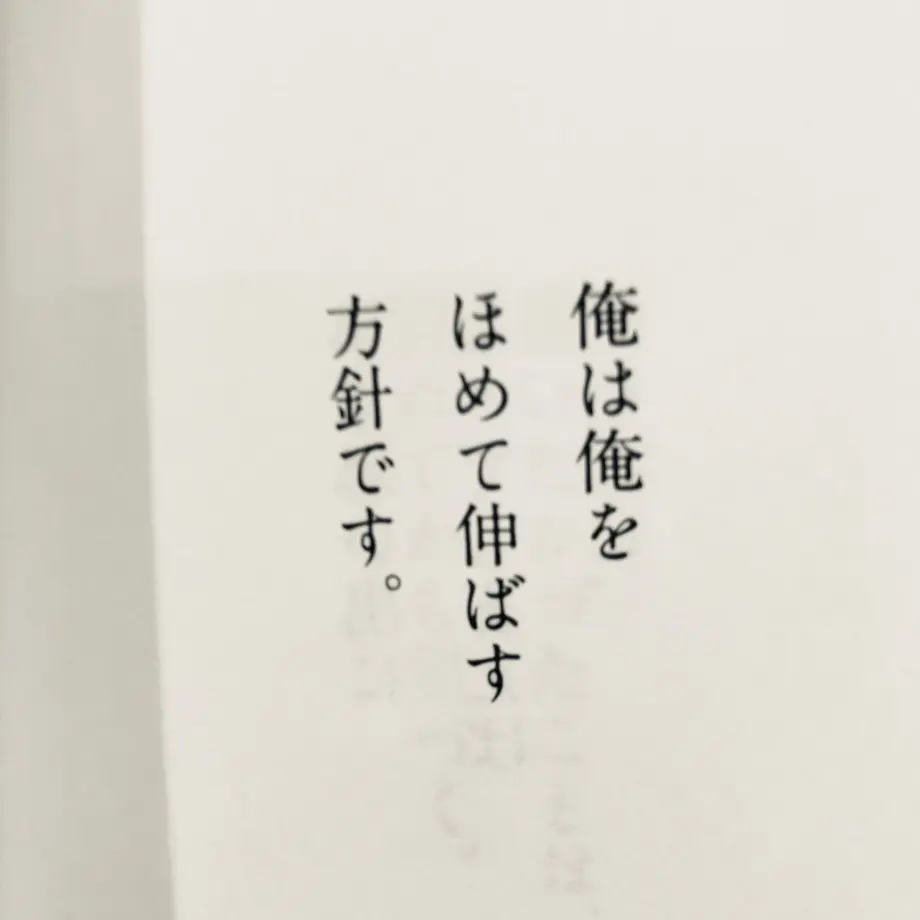 俺は俺を
ほめて伸ばす
方針です。